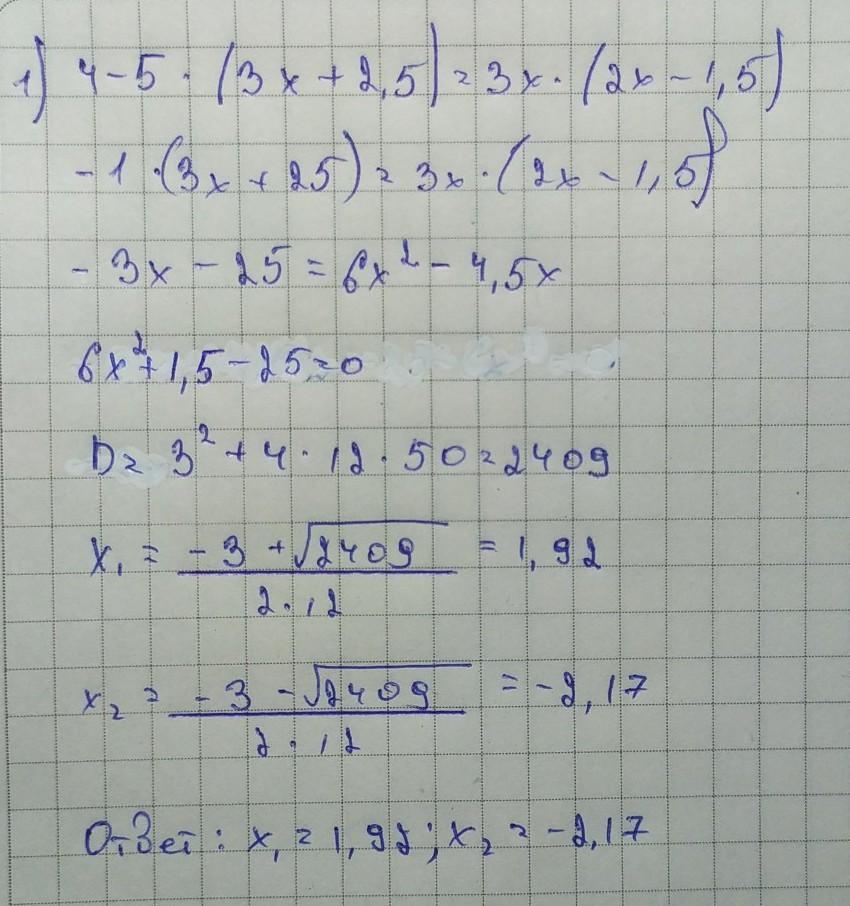 1) 4-5·(3x+2,5)=3x·(2x-1,5)
-1·(3x+25)=3x·(2x-1,5)
-3x-25=6x²-4,5x
6x²+1,5-25=0
D=3²+4·12·50=2409
x₁ = (-3+√2409)/(2·12) = 1,92
x₂ = (-3-√2409)/(2·12) = -2,17
Ответ: x₁=1,92; x₂=-2,17